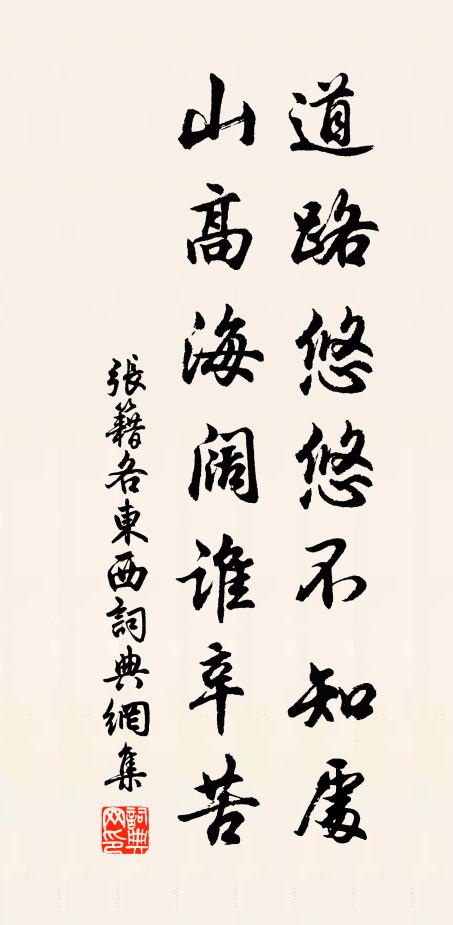 道路悠悠不知處
山高海闊誰辛苦
張籍各東西詞典網集
詞典网印